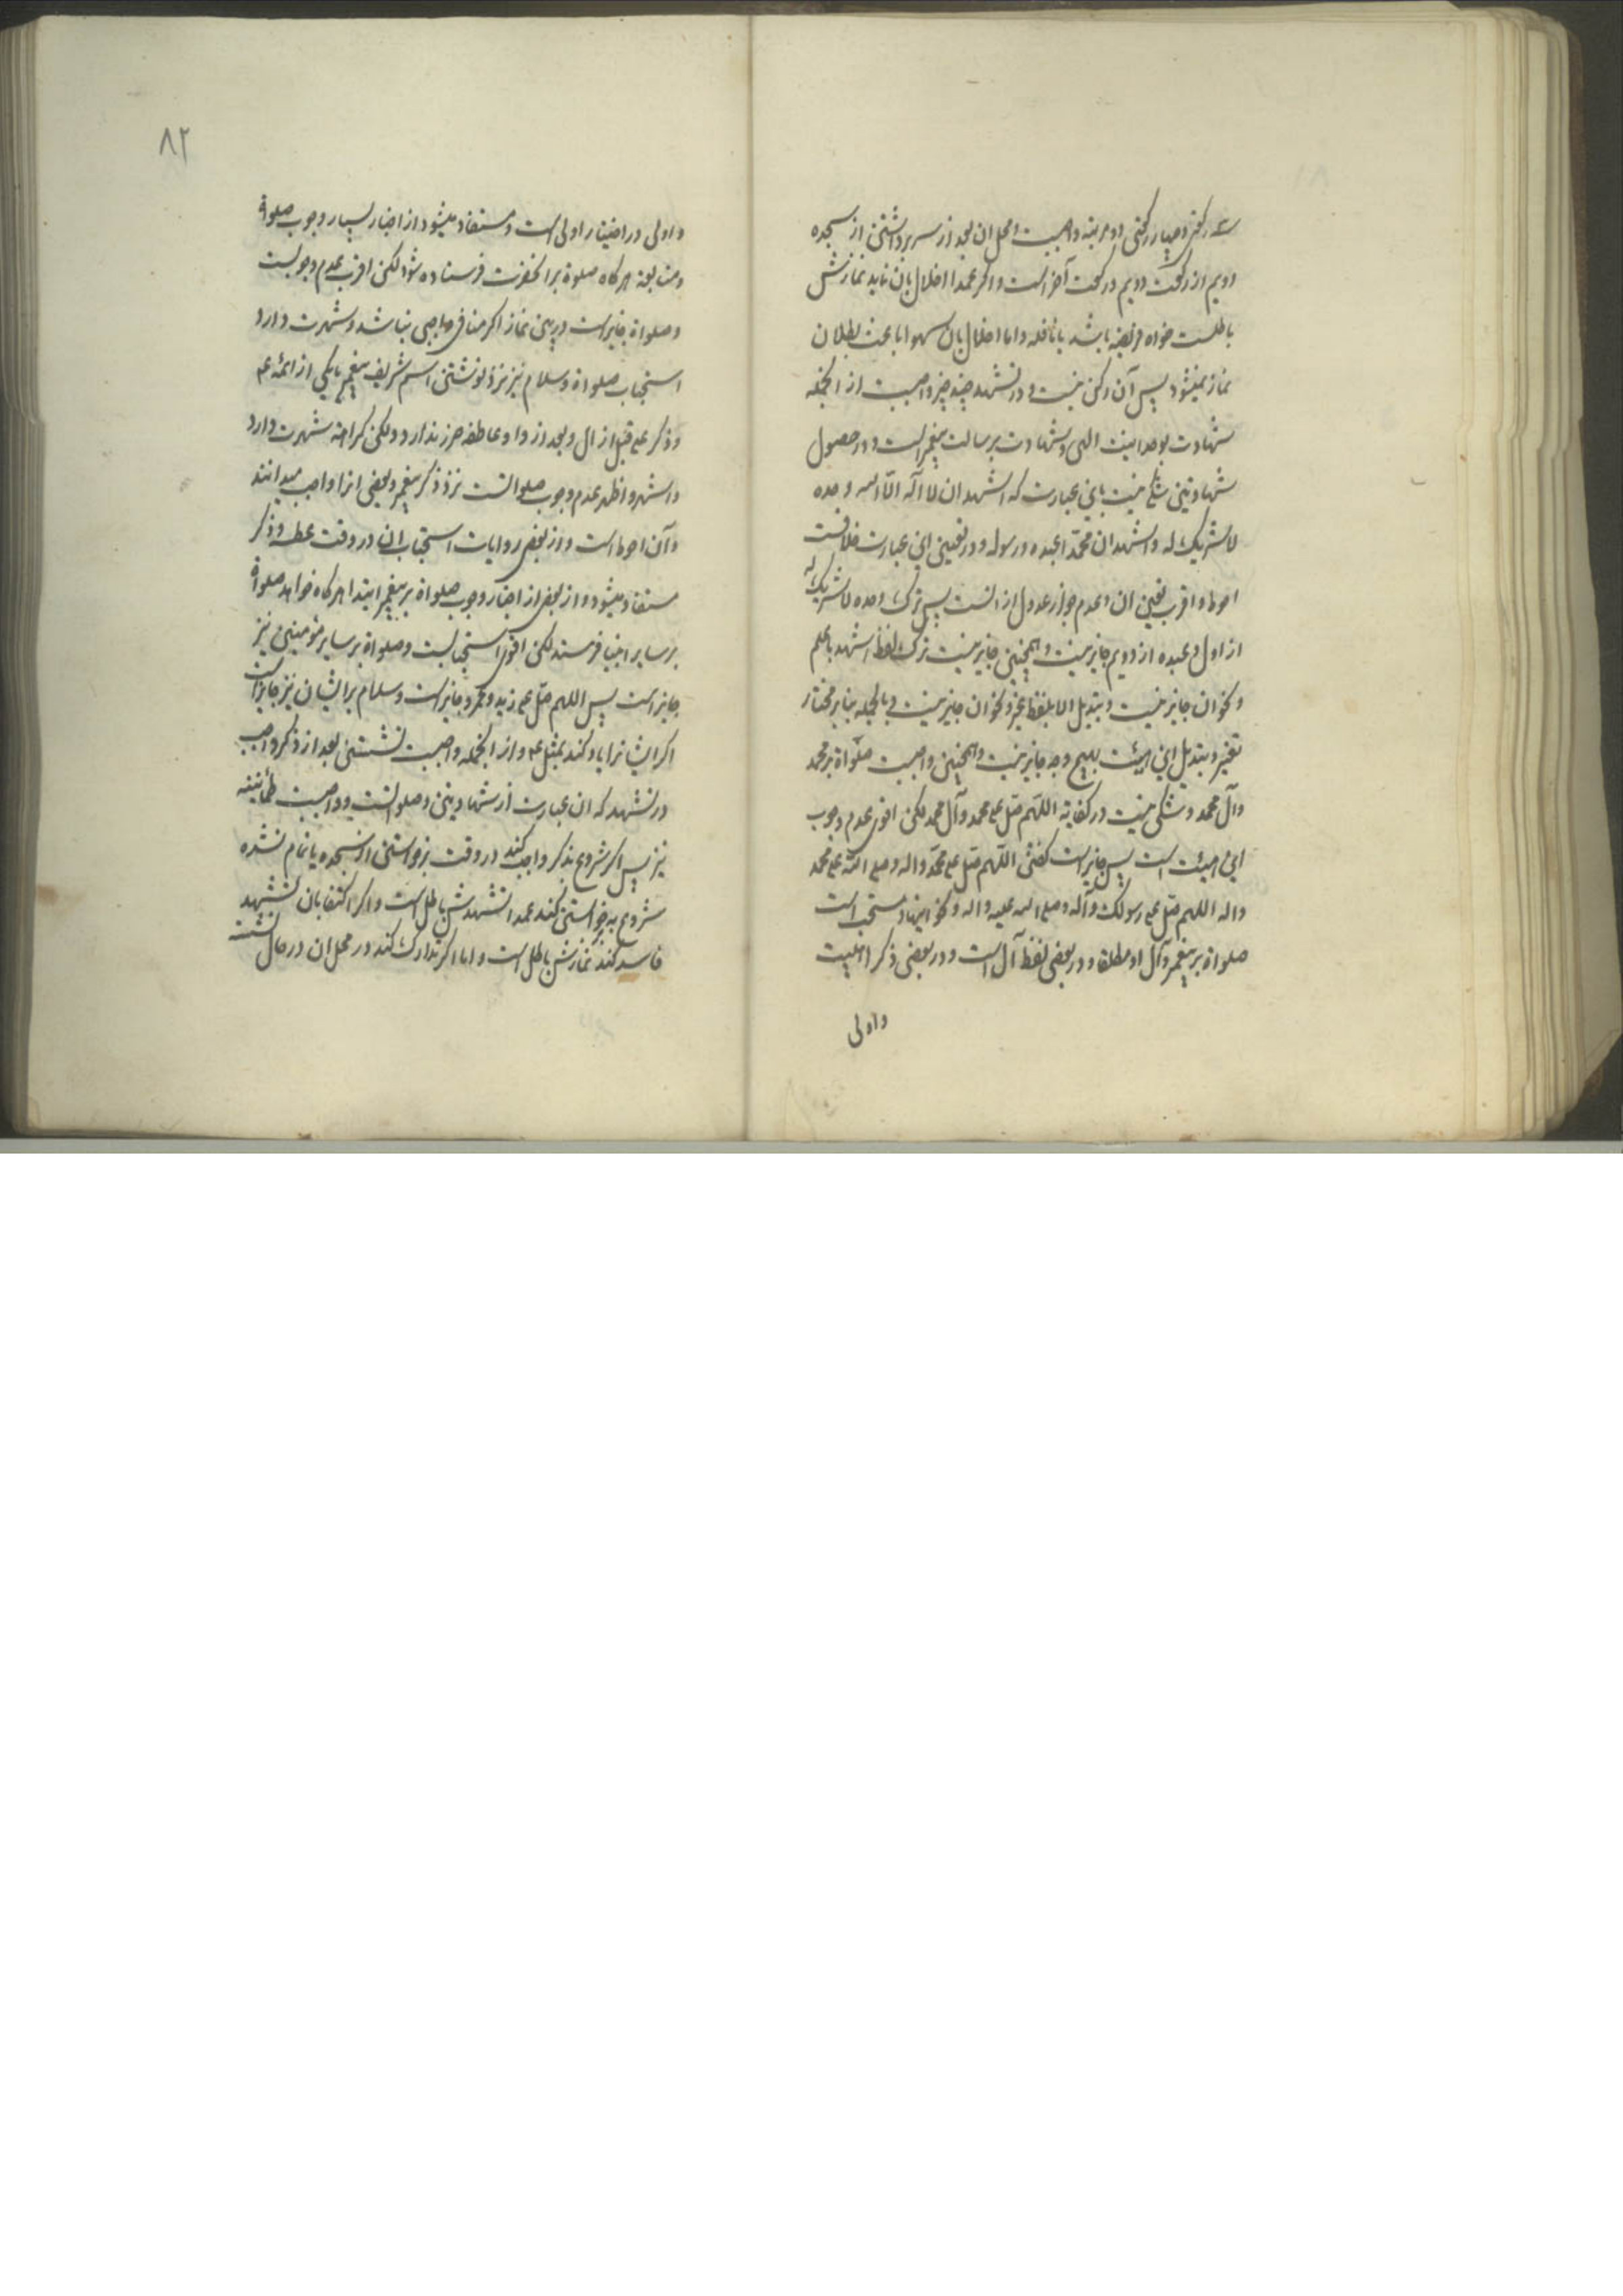 سه رکعتی و چهار رکعتی دو مرتبه واجبست و محل ان بعد از سر برداشتن از سجده
دویم از رکعت دویم و رکعت آخر است و اکر عمدا اخلال بان نماید نمازش
باطلست خواه فریضه باشد یا نافله و اما اخلال بان سهوا باعث بطلان
نماز نمیشود پس آن رکن نیست و در تشهد چند چیز واجبست از انجمله
شهادت بوحدانیت الهی و شهادت برسالت پیغمبر است و در حصول
شهادتین شکی نیست باین عبارت که اشهد ان لا اله الا الله وحده
لا شریک له و اشهد ان محمدا عبده و رسوله و در تعیین این عبارت خلافست
احوط و اقرب تعیین ان و عدم جواز عدول از انست پس ترک وحده لا شریک له
از اول و عبده از دویم جایز نیست و همچنین جایز نیست ترک لفظ اشهد باعلم
و نحو ان جایز نیست و تبدیل الا بلفظ غیر و نحو ان جایز نیست و بالجمله بنابر مختار
تغییر و تبدیل این هیئت بهیچ وجه جایز نیست و همچنین واجبست صلواة بر محمد
وآل محمد و شکی نیست در کفایة اللهم صل علی محمد وآل محمد لکن اقوی عدم وجوب
این هیئت است پس جایز است کفتن اللهم صل علی محمد واله و صلی الله علی محمد
واله اللهم صل علی رسولک وآله و صلی الله علیه واله و نحو اینها و مستحب است
صلواة بر پیغمبر وآل او مطلقا و در بعضی لفظ آل است و در بعضی ذکر اهلبیت
واولی
٨٢
واولی در اختیار اولی است و مستفاد میشود از اخبار بسیار وجوب صلوة
هرکاه صلوة بر انحضرت فرستاده شود لکن اقرب عدم وجوبست
و صلواة جایز است در بین نماز اکر منافی واجبی نباشد و شهرت دارد
استحباب صلواة و سلام نیز نزد نوشتن اسم شریف پیغمبر یا یکی از ائمه ع
و ذکر علی قبل از ال و بعد از واو عاطفه ضرر ندارد ولکن کراهة شهرت دارد
واشهر و اظهر عدم وجوب صلواتست نزد ذکر پیغمبر و بعضی انرا واجب میدانند
وآن احوط است و از بعضی روایات استحباب ان در وقت عطسه و ذکر
مستفاد میشود و از بعضی از اخبار وجوب صلواة بر پیغمبر ابتدا هرکاه خواهد صلواة
بر سایر انبیا فرستد لکن اقوی استحبابست و صلواة بر سایر مؤمنین نیز
جایز است پس اللهم صل علی زید و عمرو جایز است و سلام بر ایشان نیز جایز است
اکر ایشانرا یاد کند بمثل ع و از انجمله واجبست نشستن بعد از ذکر واجب
در تشهد که ان عبارت از شهادتین و صلواتست و واجبست طمأنینه
نیز پس اکر شروع بذکر واجب کند در وقت برخواستن از سجده یا تمام نشده
شروع به برخواستن کند عمدا تشهدش باطل است و اکر اکتفا بان تشهد
فاسد کند نمازش باطل است و اما اکر تدارک کند در محل ان در حال نشست